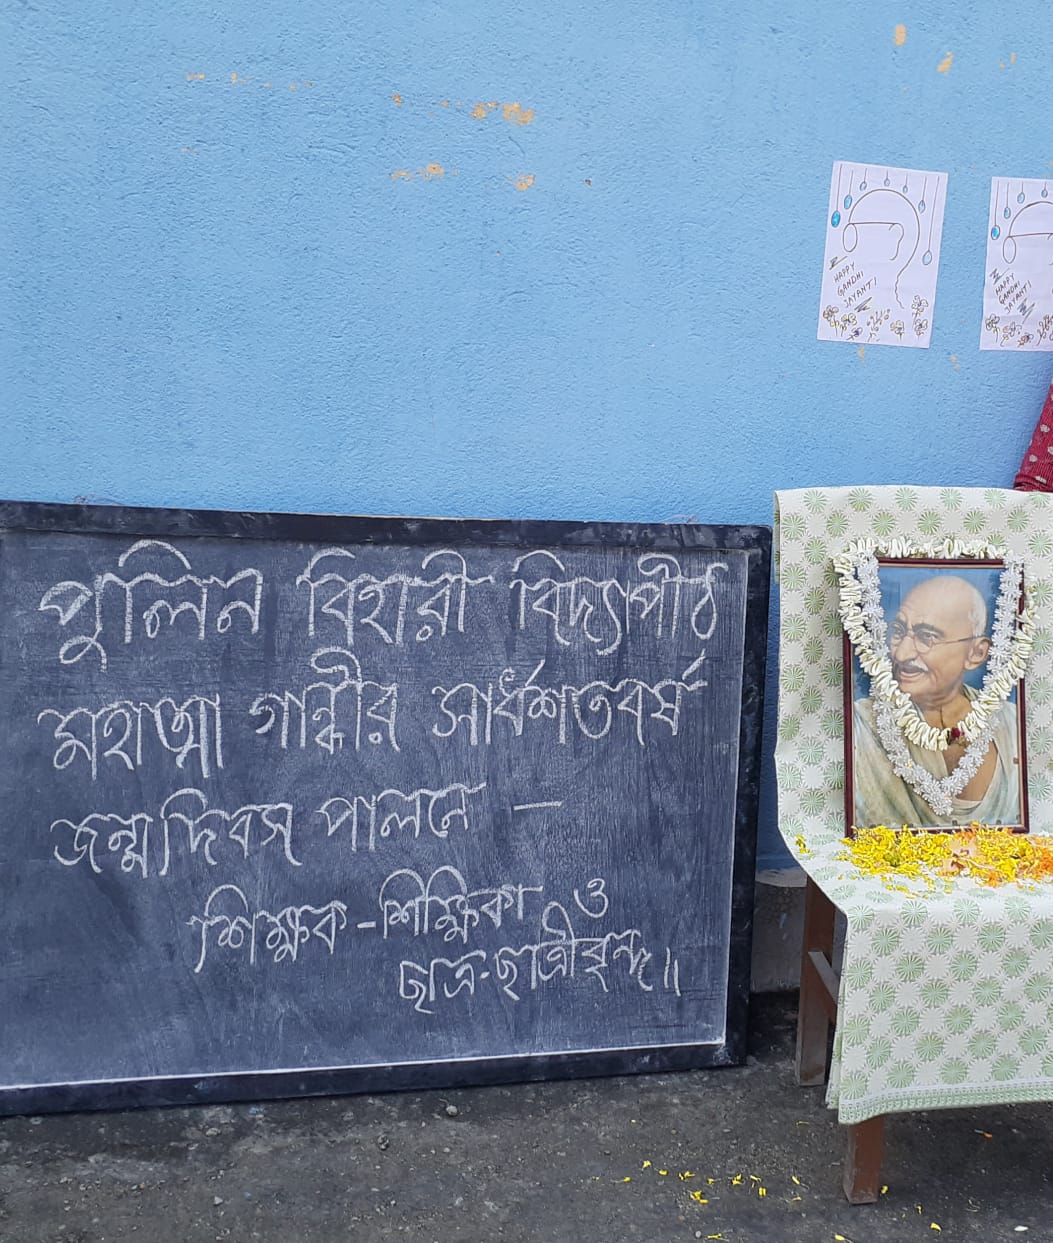 পুলিন বিহারী বিদ্যাপীঠ
মহাত্মা গান্ধীর সার্ধশতবর্ষ
জন্মদিবস পালনে —
শিক্ষক - শিক্ষিকা ও
ছাত্র-ছাত্রীবৃন্দ॥
HAPPY
GANDHI
JAYANTI
HAPPY
GANDHI
JAYANTI